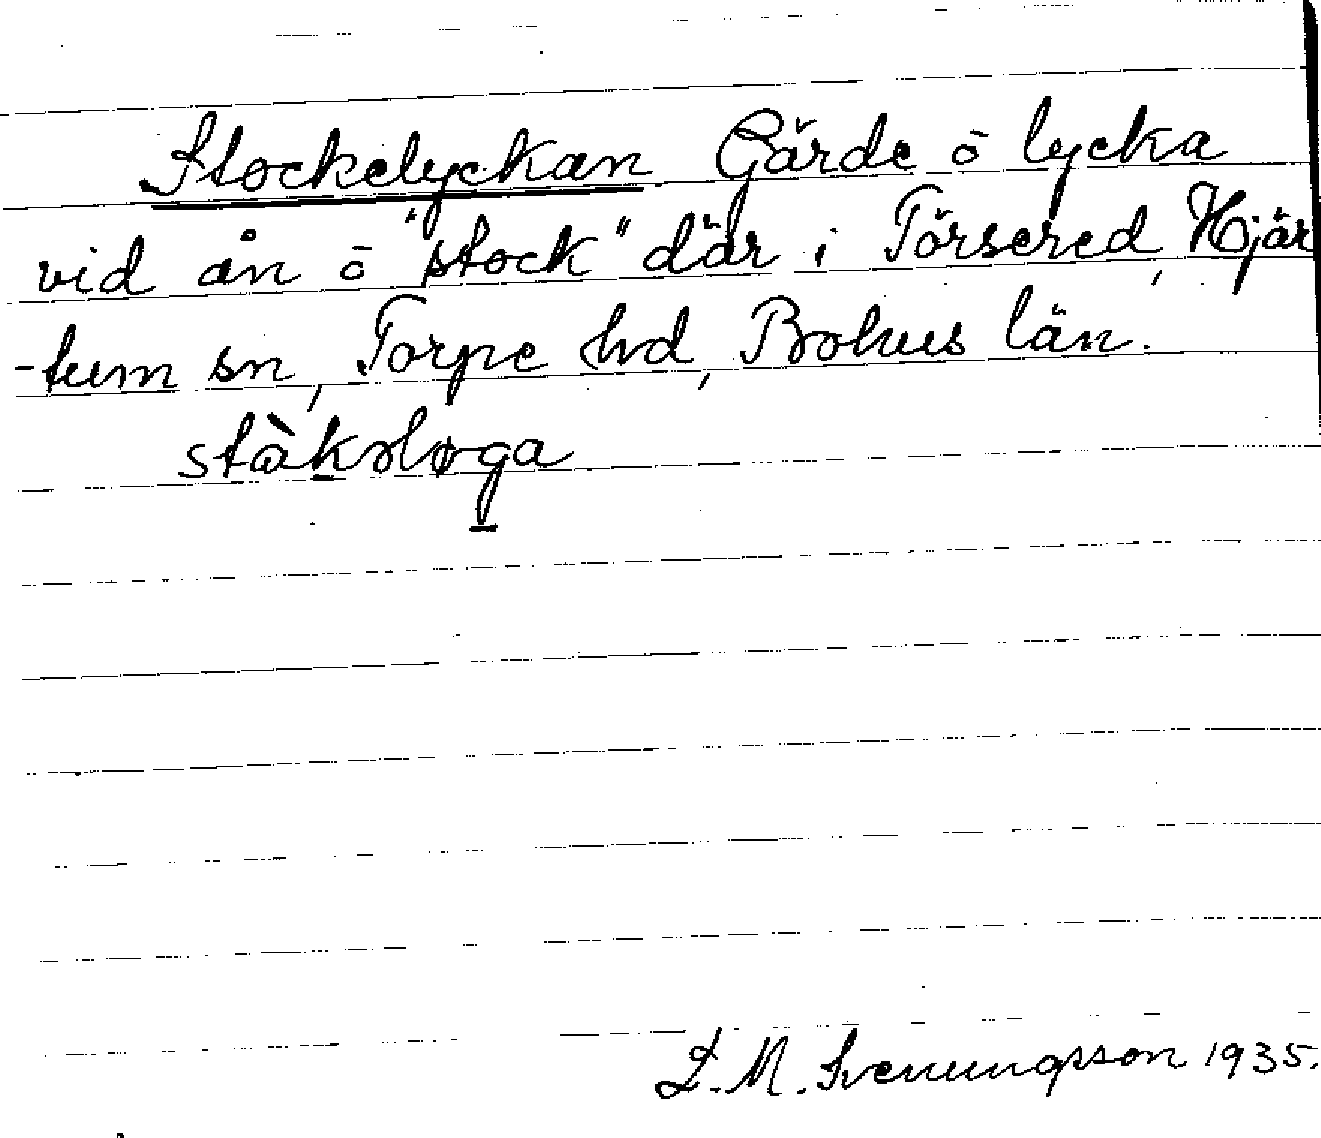 Stockelyckan Gärde ō lycka
vid ån ō "stock" där i Törsered, Hjär
-tum sn, Torpe hd, Bohus län.
stàkəløga
L. M. Svenungsson 1935.